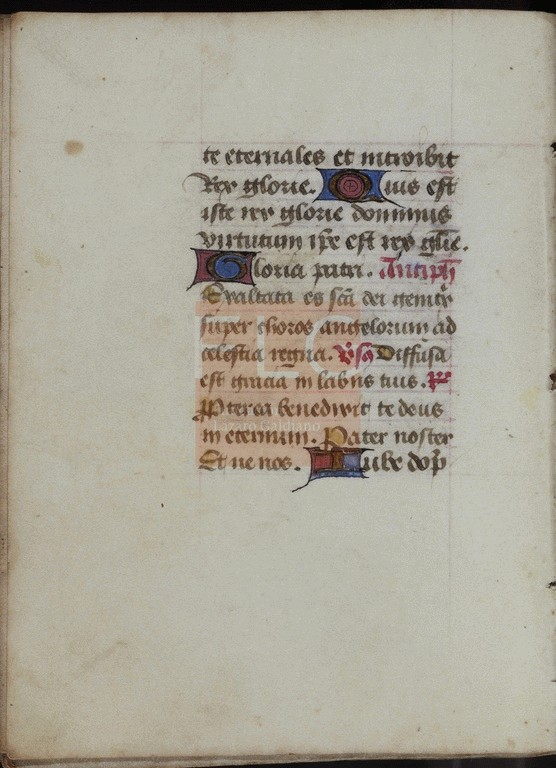 te eternales et introibit
Rex glorie. Quis est
iste rex glorie dominus
virtutum ip̅e est rex gl̅ie.
Gloria patri. Antiph̅
Exaltata es sc̅a dei genitͥx
super choros angelorum ad
celestia regna. V̅s̅ Diffusa
est gracia in labiis tuis. R̅
P̱terea benedixit te deus
in eternum. Pater noster
Et ne nos. Iube dop̅
FLG
Lázaro Galdiano